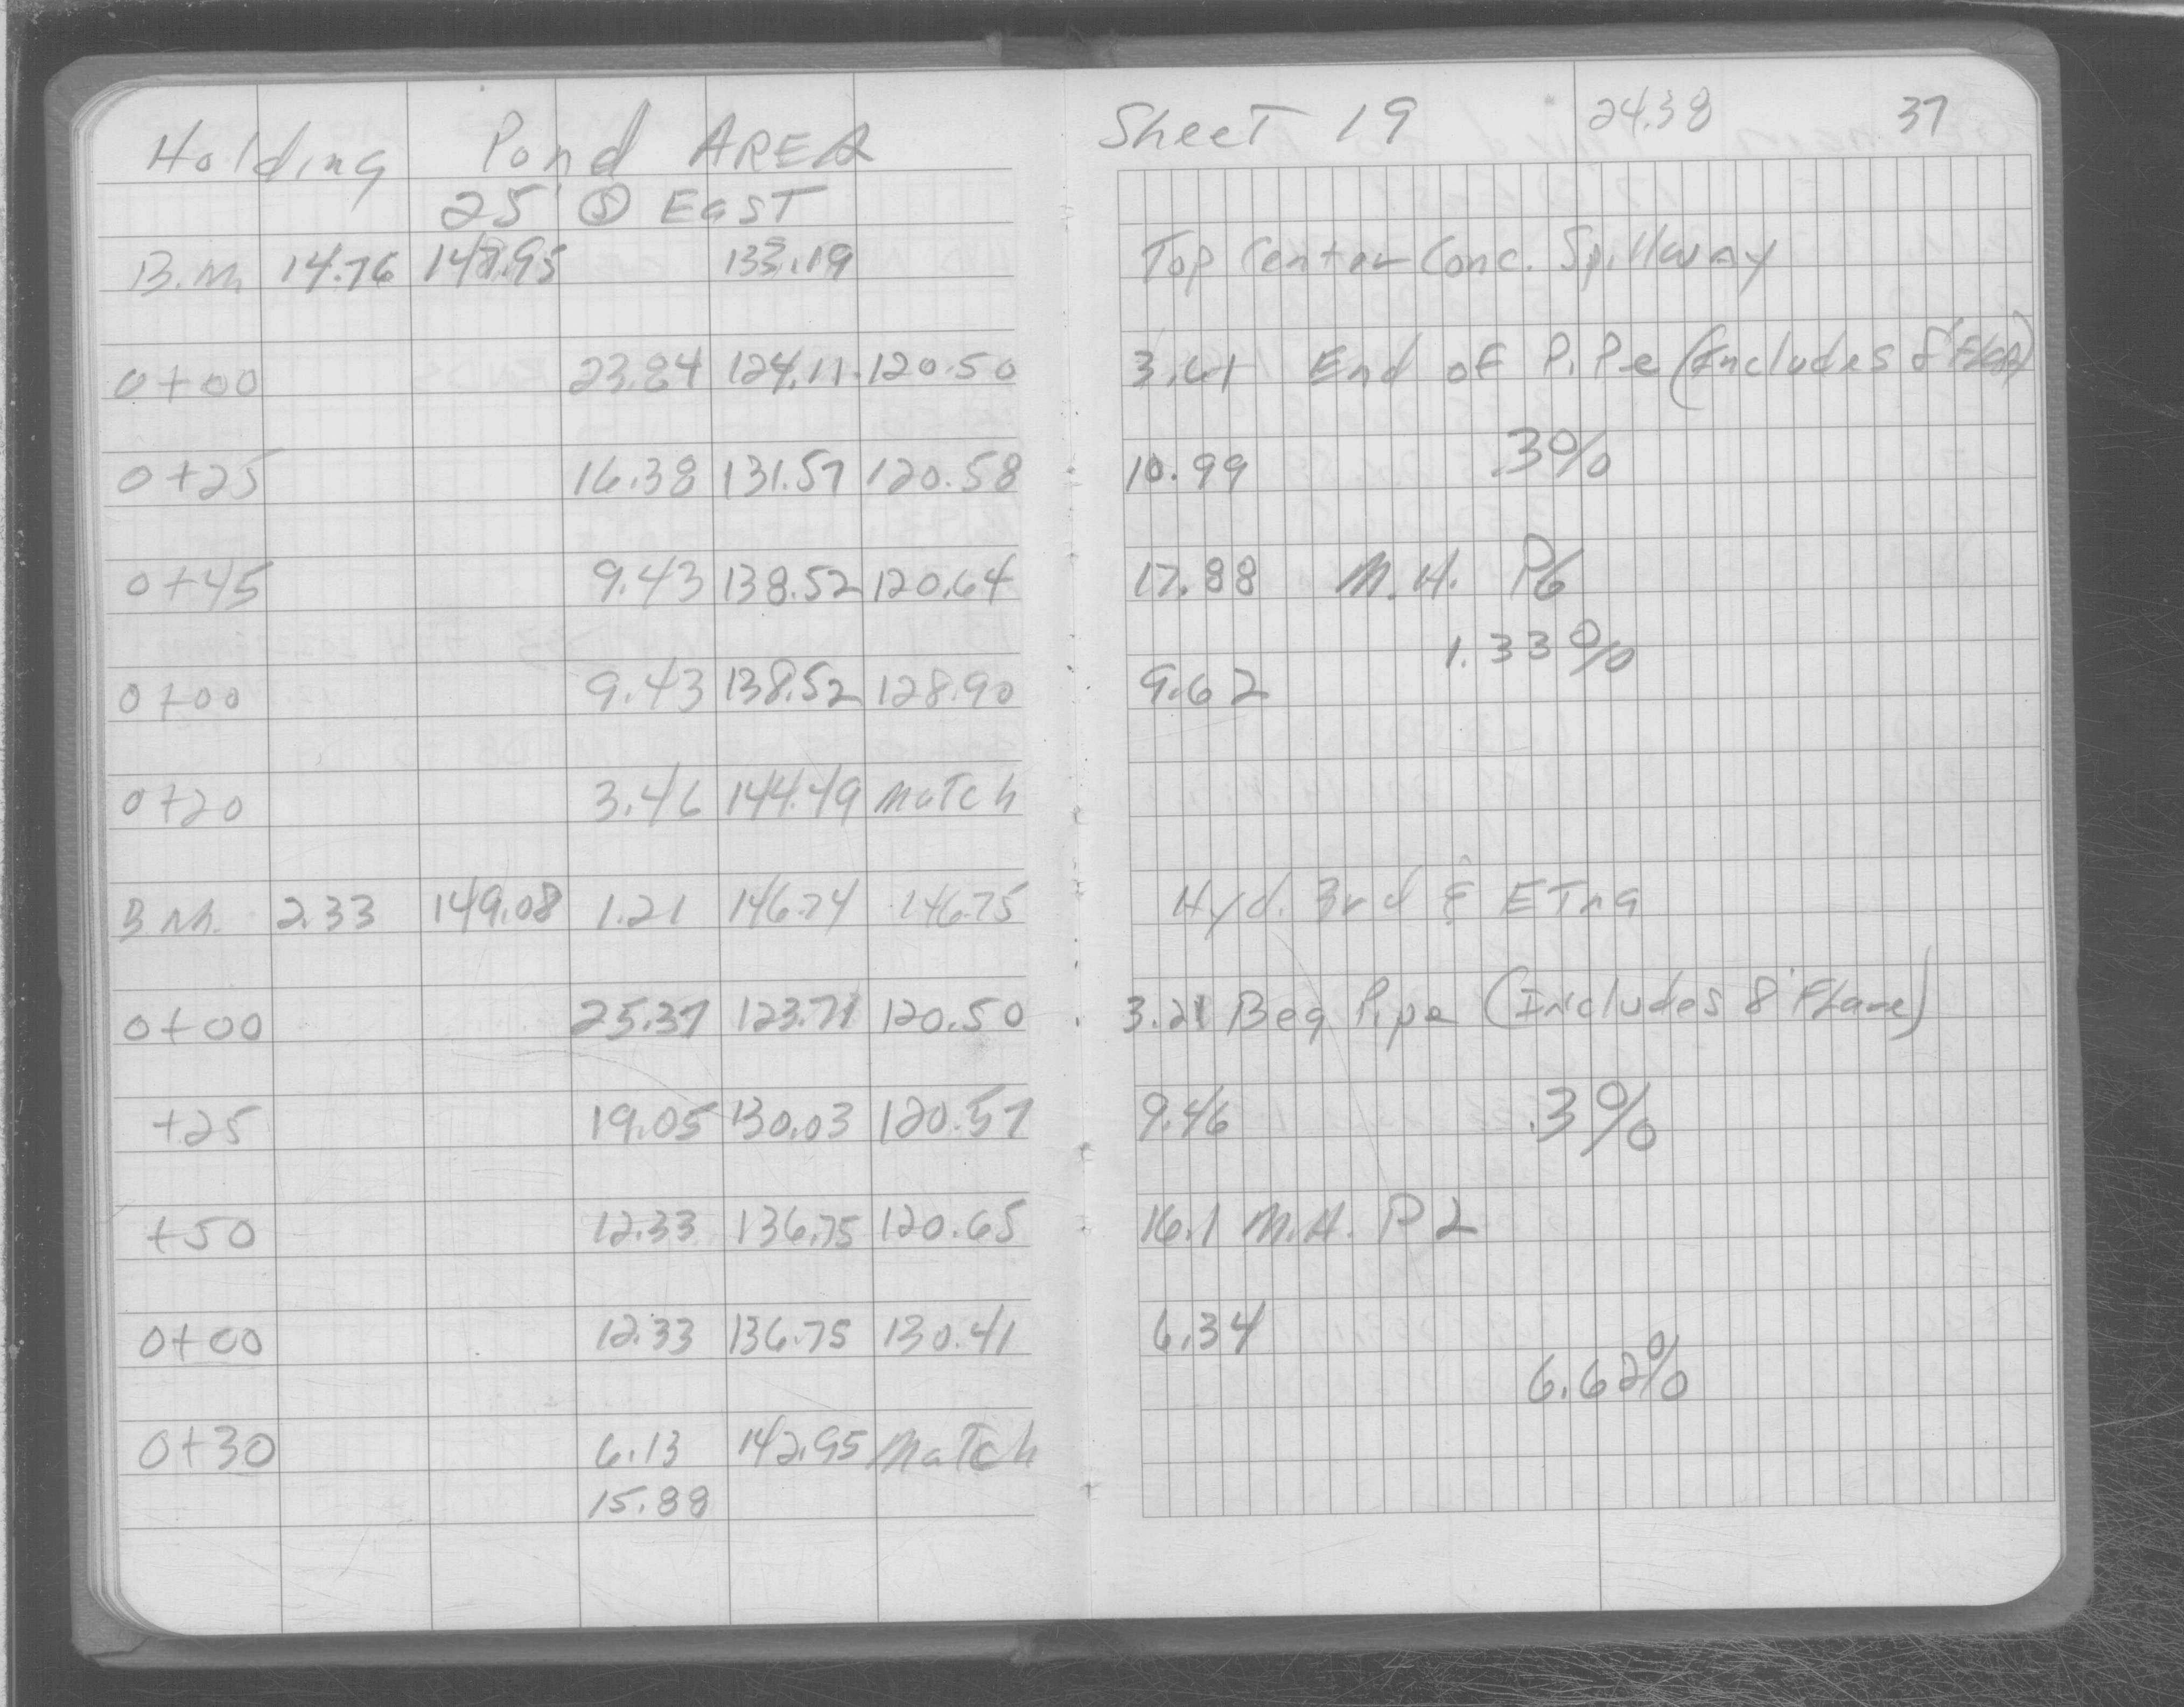 Holding Pond AREA
25' Ⓢ East
B.M. 14.76 147.95 133.19
0+00 23.84 124.11 120.50
0+25 16.38 131.57 120.58
0+45 9.43 138.52 120.64
0+00 9.43 138.52 128.90
0+20 3.46 144.49 Match
B.M. 2.33 149.08 1.21 146.74 146.75
0+00 25.37 123.71 120.50
+25 19.05 130.03 120.57
+50 12.33 136.75 120.65
0+00 12.33 136.75 130.41
0+30 6.13 142.95 Match
15.88
Sheet 19 24.38 37
Top Center Conc. Spillway
3.61 End of Pipe (Includes 8'
10.99 .3%
17.88 M.H. P6
1.33%
9.62
Hyd. 3rd & ETna
3.21 Beg Pipe (Includes 8' Flare)
9.46 .3%
16.1 M.H. P2
6.34
6.62%